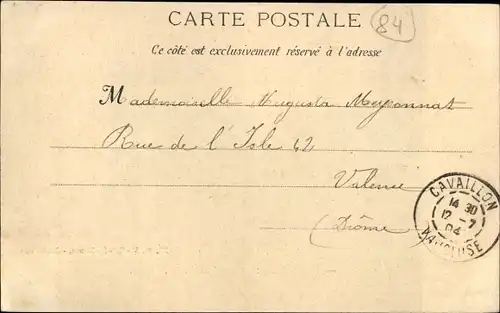 CARTE POSTALE
84
Ce côté est exclusivement réservé à l'adresse
Mademoiselle Augusta Meyonnat
Rue de l'Isle 42
Valence
(Drôme)
CAVAILLON
14 30
12 - 7
04
VAUCLUSE